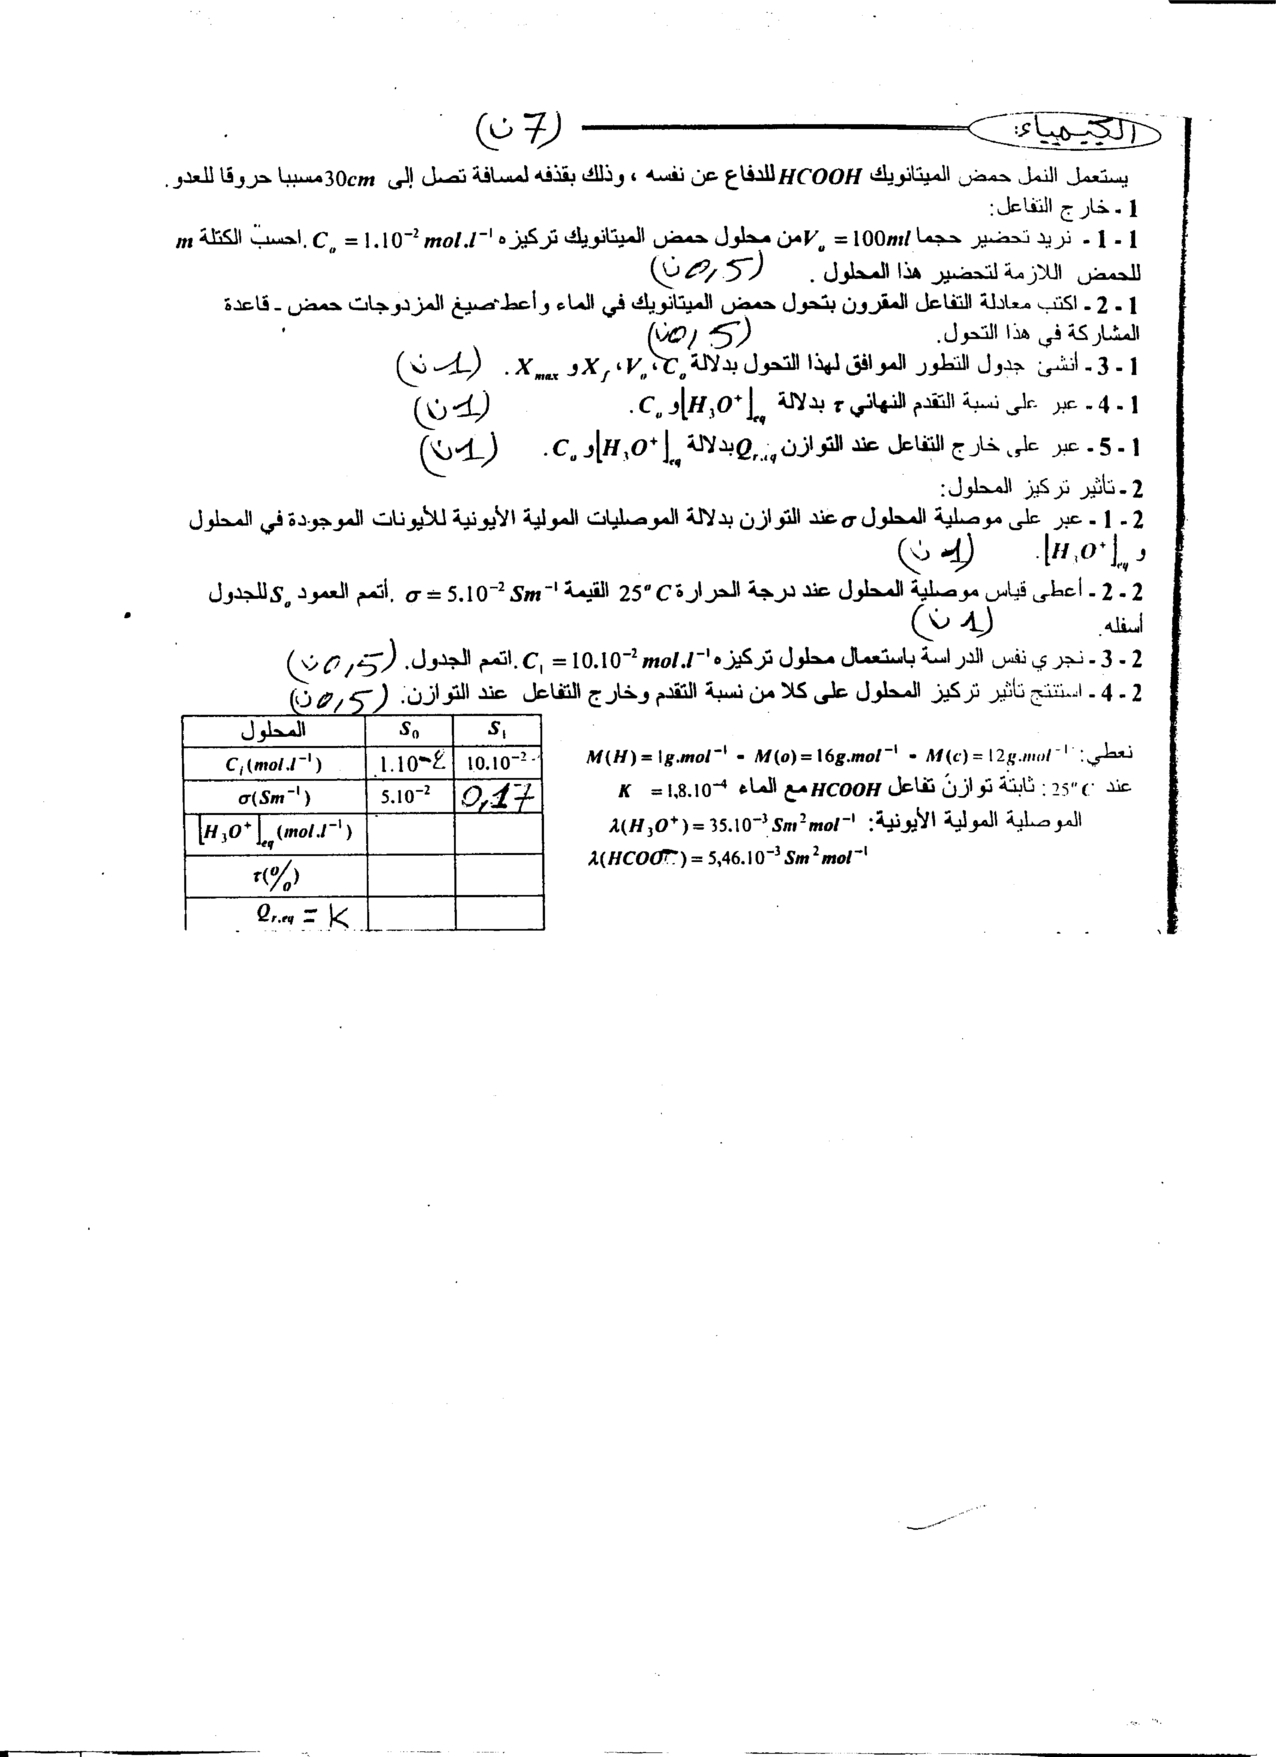 الكيمياء:
(7 ن)
يستعمل النمل حمض الميثانويك HCOOH للدفاع عن نفسه ، وذلك بقذفه لمسافة تصل إلى 30cm مسببا حروقا للعدو.
1 - خارج التفاعل:
1 - 1 - نريد تحضير حجما V₀ = 100ml من محلول حمض الميثانويك تركيزه C₀ = 1.10⁻² mol.l⁻¹ . احسب الكتلة m
للحمض اللازمة لتحضير هذا المحلول . (0,5 ن)
1 - 2 - اكتب معادلة التفاعل المقرون بتحول حمض الميثانويك في الماء وأعط صيغ المزدوجات حمض - قاعدة
المشاركة في هذا التحول. (0,5 ن)
1 - 3 - أنشئ جدول التطور الموافق لهذا التحول بدلالة C₀ ، V₀ ، X_f و X_max . (1 ن)
1 - 4 - عبر على نسبة التقدم النهائي τ بدلالة [H₃O⁺]_eq و C₀ . (1 ن)
1 - 5 - عبر على خارج التفاعل عند التوازن Q_r.eq بدلالة [H₃O⁺]_eq و C₀ . (1 ن)
2 - تأثير تركيز المحلول:
2 - 1 - عبر على موصلية المحلول σ عند التوازن بدلالة الموصليات المولية الأيونية للأيونات الموجودة في المحلول
و [H₃O⁺]_eq . (1 ن)
2 - 2 - أعطى قياس موصلية المحلول عند درجة الحرارة 25°C القيمة σ = 5.10⁻² Sm⁻¹ . أتمم العمود S₀ للجدول
أسفله. (1 ن)
2 - 3 - نجري نفس الدراسة باستعمال محلول تركيزه C₁ = 10.10⁻² mol.l⁻¹ . اتمم الجدول. (0,5 ن)
2 - 4 - استنتج تأثير تركيز المحلول على كلا من نسبة التقدم وخارج التفاعل عند التوازن. (0,5 ن)
نعطي: M(H) = 1g.mol⁻¹ - M(o) = 16g.mol⁻¹ - M(c) = 12g.mol⁻¹
عند 25°C : ثابتة توازن تفاعل HCOOH مع الماء K = 1,8.10⁻⁴
الموصلية المولية الأيونية: λ(H₃O⁺) = 35.10⁻³ Sm²mol⁻¹
λ(HCOO⁻) = 5,46.10⁻³ Sm²mol⁻¹
المحلول S₀ S₁
C_i (mol.l⁻¹) 1.10⁻² 10.10⁻²
σ(Sm⁻¹) 5.10⁻² 0,17
[H₃O⁺]_eq (mol.l⁻¹)
τ(%)
Q_r.eq = K